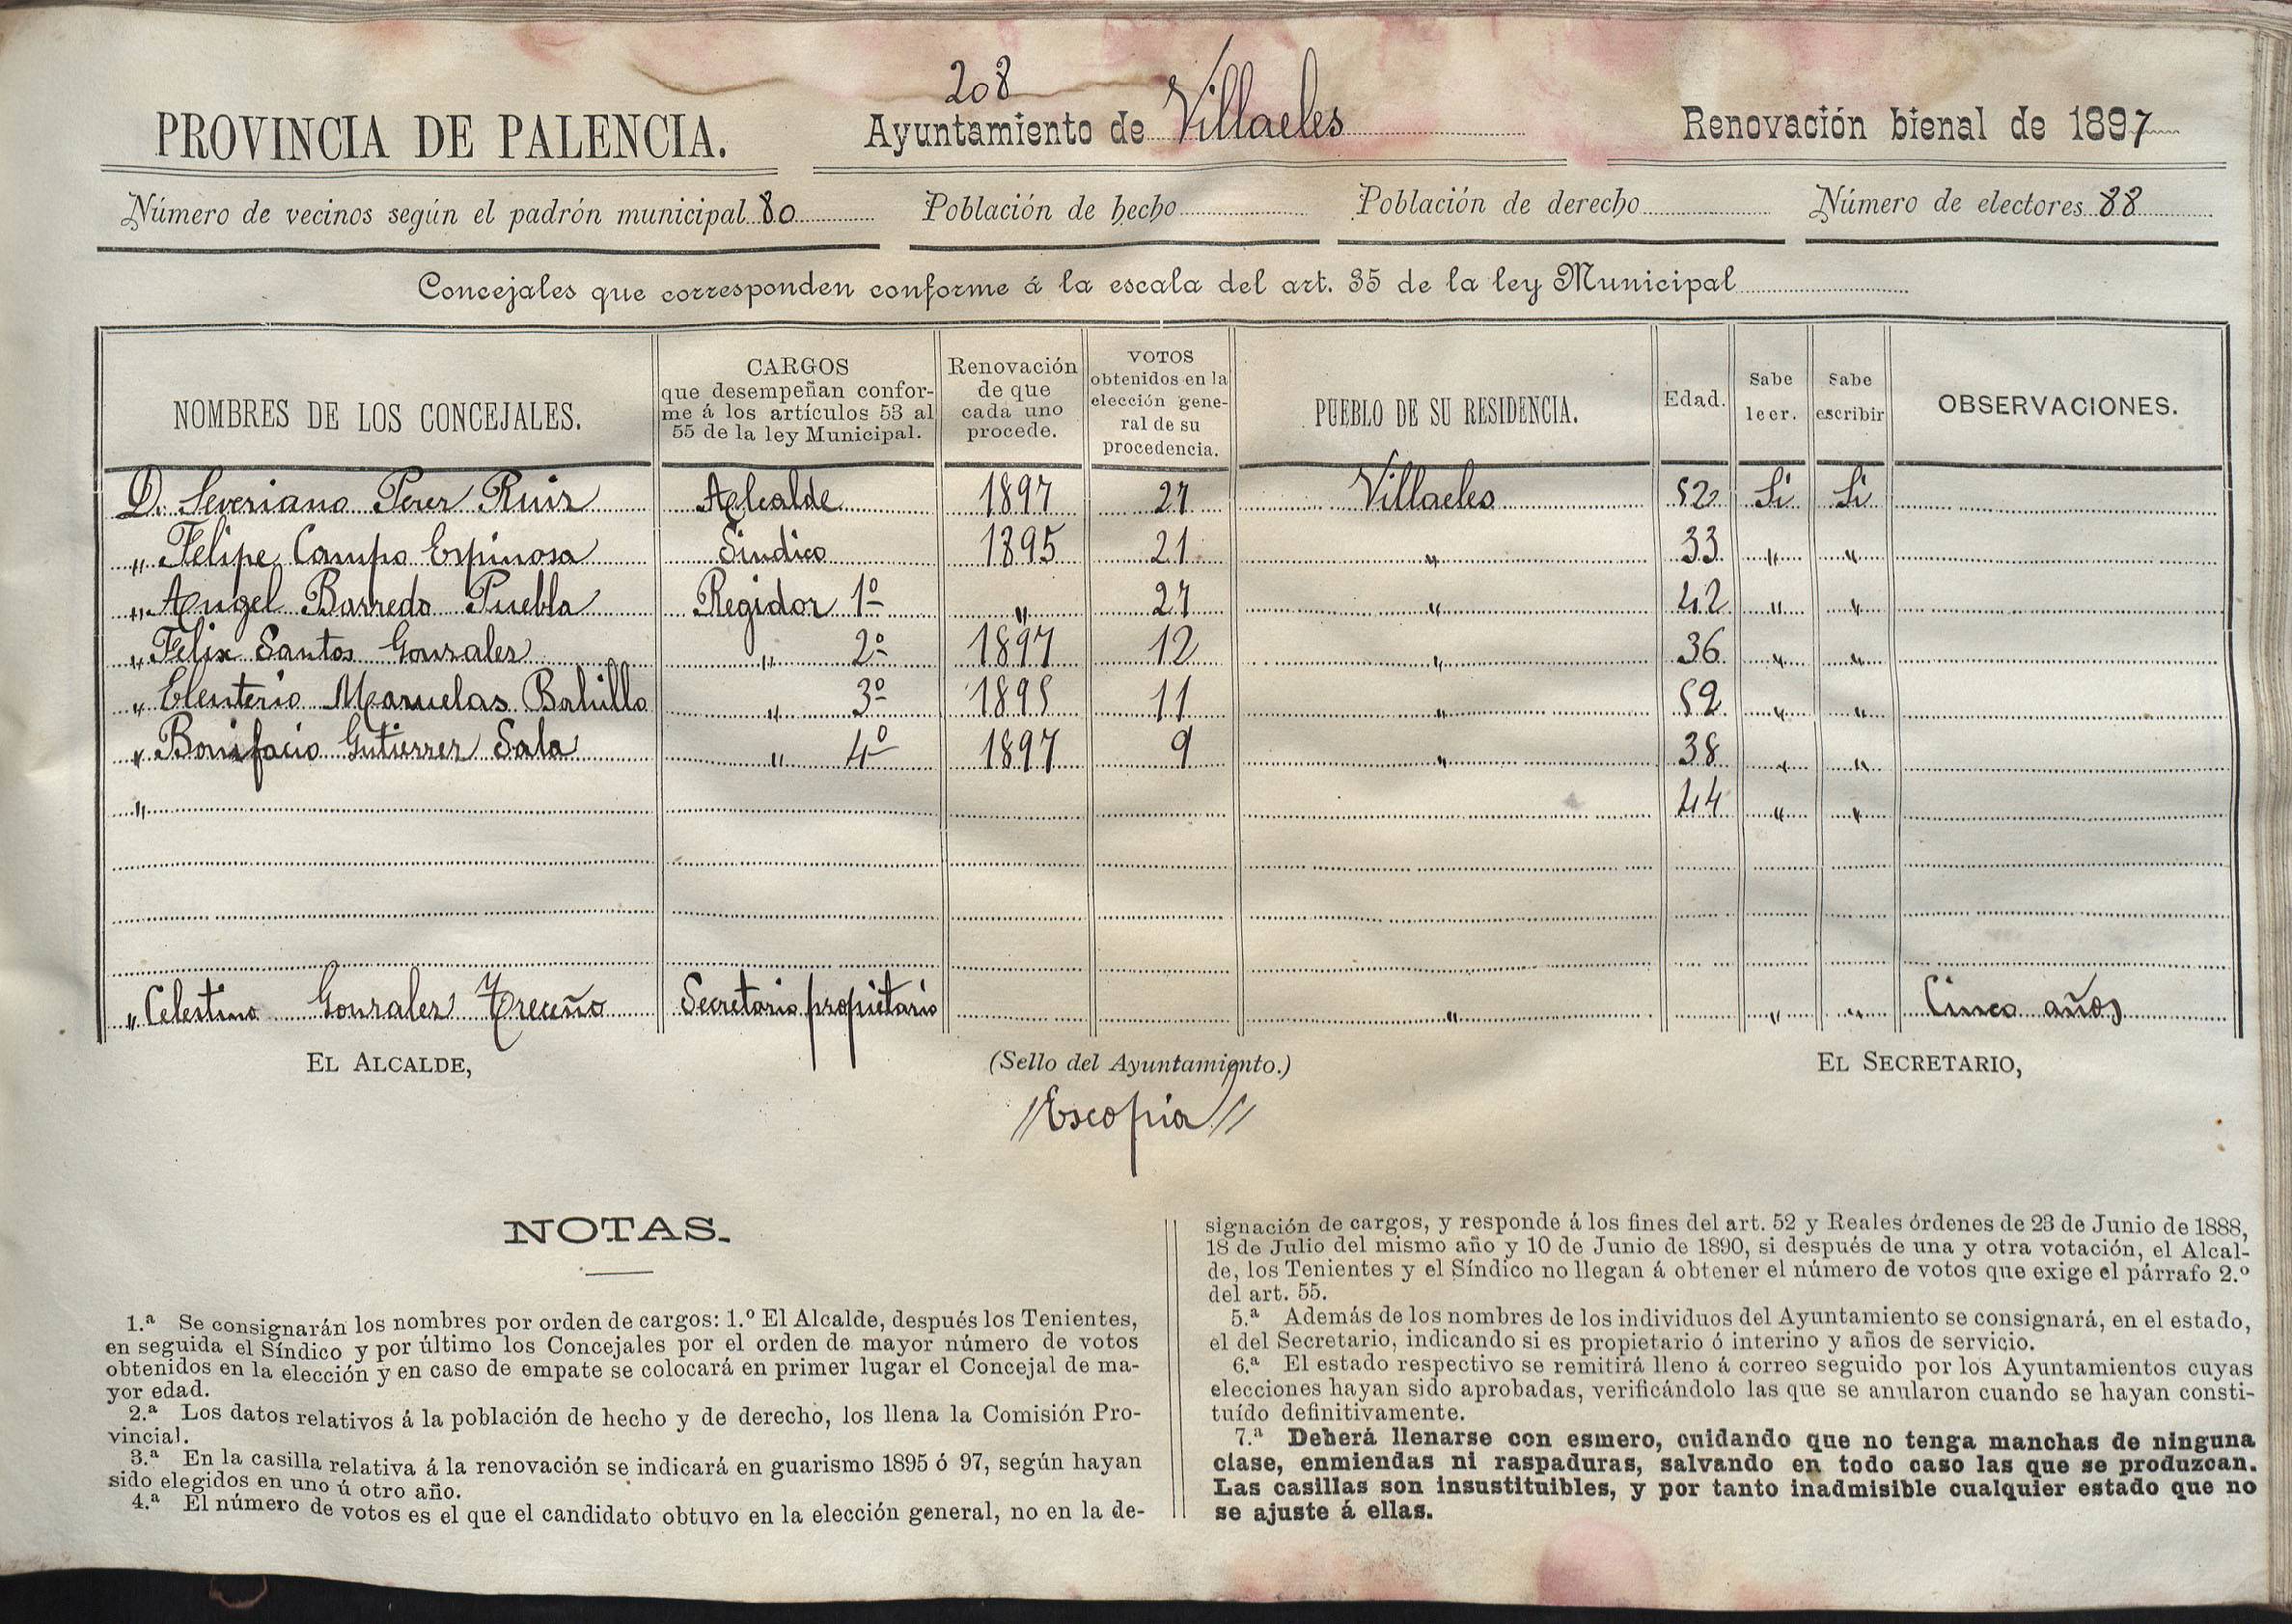 208
PROVINCIA DE PALENCIA. Ayuntamiento de Villaeles Renovación bienal de 1897
Número de vecinos según el padrón municipal 80 Población de hecho Población de derecho Número de electores 88
Concejales que corresponden conforme á la escala del art. 35 de la ley Municipal
NOMBRES DE LOS CONCEJALES. CARGOS que desempeñan confor- me á los artículos 53 al 55 de la ley Municipal. Renovación de que cada uno procede. VOTOS obtenidos en la elección gene- ral de su procedencia. PUEBLO DE SU RESIDENCIA. Edad. Sabe leer. Sabe escribir OBSERVACIONES.
D. Severiano Perez Ruiz Alcalde 1897 27 Villaeles 52 Si Si
" Felipe Campo Espinosa Sindico 1895 21 " 33 " "
" Angel Barreda Puebla Regidor 1º " 27 " 42 " "
" Felix Santos Gonzalez " 2º 1897 12 " 36 " "
" Eleuterio Manuelas Balillo " 3º 1895 11 " 52 " "
" Bonifacio Gutierrez Sala " 4º 1897 9 " 38 " "
" 44 " "
" Celestino Gonzalez Treceño Secretario propietario " " " Cinco años
EL ALCALDE, (Sello del Ayuntamiento.) EL SECRETARIO,
//Es copia//
NOTAS.
1.ª Se consignarán los nombres por orden de cargos: 1.º El Alcalde, después los Tenientes,
en seguida el Síndico y por último los Concejales por el orden de mayor número de votos
obtenidos en la elección y en caso de empate se colocará en primer lugar el Concejal de ma-
yor edad.
2.ª Los datos relativos á la población de hecho y de derecho, los llena la Comisión Pro-
vincial.
3.ª En la casilla relativa á la renovación se indicará en guarismo 1895 ó 97, según hayan
sido elegidos en uno ú otro año.
4.ª El número de votos es el que el candidato obtuvo en la elección general, no en la de-
signación de cargos, y responde á los fines del art. 52 y Reales órdenes de 23 de Junio de 1888,
18 de Julio del mismo año y 10 de Junio de 1890, si después de una y otra votación, el Alcal-
de, los Tenientes y el Síndico no llegan á obtener el número de votos que exige el párrafo 2.º
del art. 55.
5.ª Además de los nombres de los individuos del Ayuntamiento se consignará, en el estado,
el del Secretario, indicando si es propietario ó interino y años de servicio.
6.ª El estado respectivo se remitirá lleno á correo seguido por los Ayuntamientos cuyas
elecciones hayan sido aprobadas, verificándolo las que se anularon cuando se hayan consti-
tuído definitivamente.
7.ª Deberá llenarse con esmero, cuidando que no tenga manchas de ninguna
clase, enmiendas ni raspaduras, salvando en todo caso las que se produzcan.
Las casillas son insustituibles, y por tanto inadmisible cualquier estado que no
se ajuste á ellas.